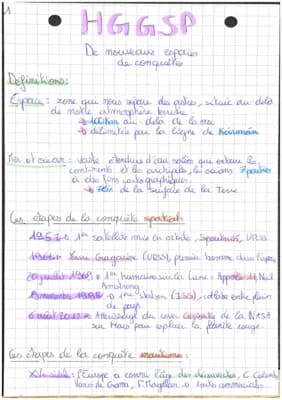 1
HGGSP
De nouveaux espaces
de conquêtes
Définitions:
Espace: zone qui nous sépare des astres, située au-delà
de notre atmosphère terrestre
100km au delà de la mer
délimitée par la ligne de Kármán
Mer et océan: vaste étendue d'eau salée qui entoure les
continents et les archipels, les océans
à des fins cartographiques
de la surface de la Terre
Les étapes de la conquête spatiale:
1957 → 1er satellite mis en orbite, Spoutnik, URSS
1961 → Youri Gagarine (URSS), premier homme dans l'espace
20 juillet 1969 → 1er humain sur la Lune: Apollo 11, Neil
Armstrong
1998 → 1ère station (ISS), collab entre plein
de pays
6 août 2012 → Atterrissage du rover Curiosity de la NASA
sur Mars pour explorer la planète rouge.
Les étapes de la conquête maritime:
XVe siècle: l'Europe a connu l'âge des découvertes, C. Colomb
Vasco de Gama, F. Magellan → routes commerciales